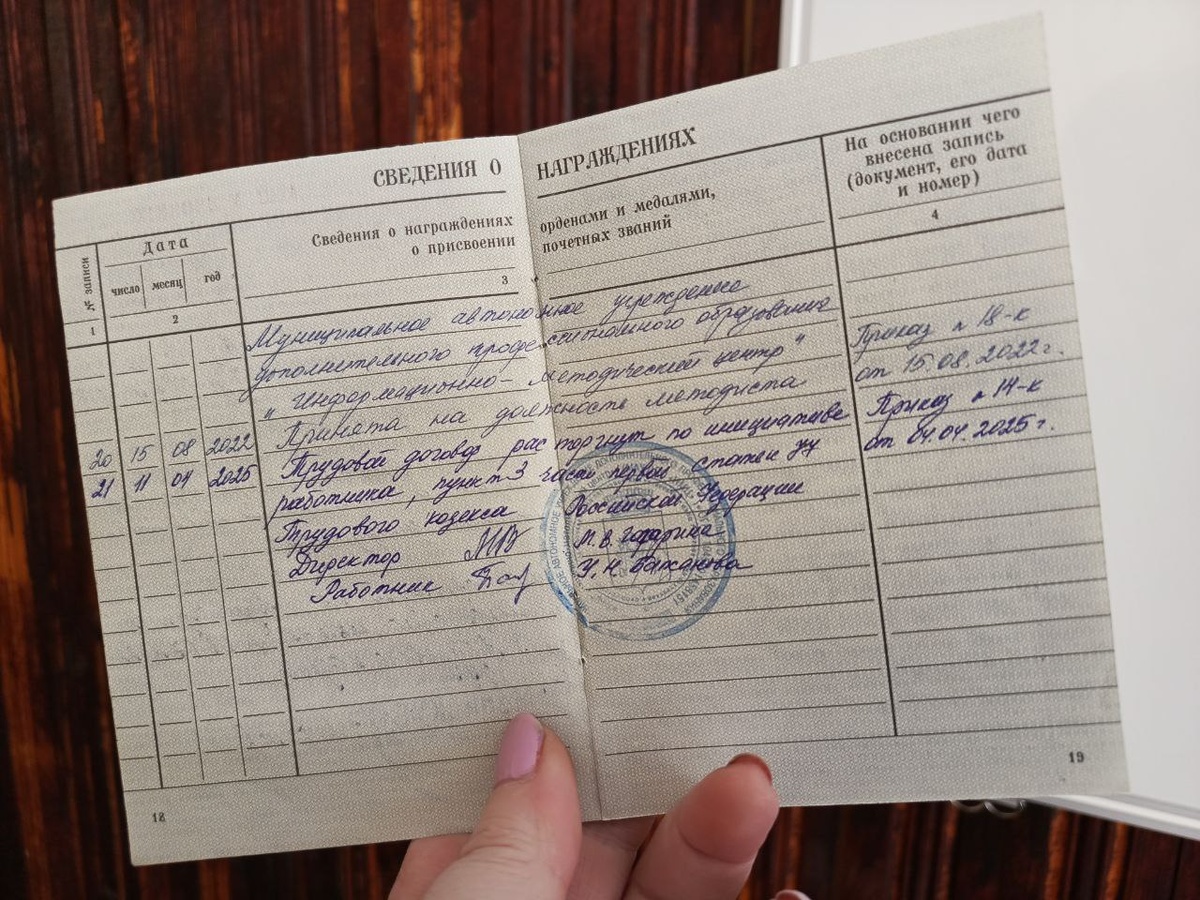 СВЕДЕНИЯ О НАГРАЖДЕНИЯХ
№ записи
Дата
число месяц год
Сведения о награждениях орденами и медалями,
о присвоении почетных званий
На основании чего
внесена запись
(документ, его дата
и номер)
1 2 3 4
Муниципальное автономное учреждение
дополнительного профессионального образования
"Информационно-методический центр"
20 15 08 2022 Принята на должность методиста Приказ № 18-к
от 15.08.2022г.
21 11 04 2025 Трудовой договор расторгнут по инициативе Приказ № 14-к
работника, пункт 3 части первой статьи 77 от 04.04.2025г.
Трудового кодекса Российской Федерации
Директор М.В.
Работник У.Н. Бажанова
18
19